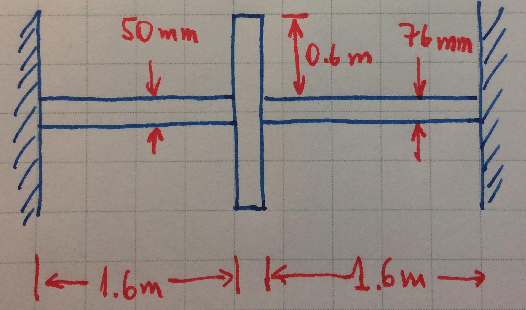 50mm
0.6m
76mm
1.6m
1.6m